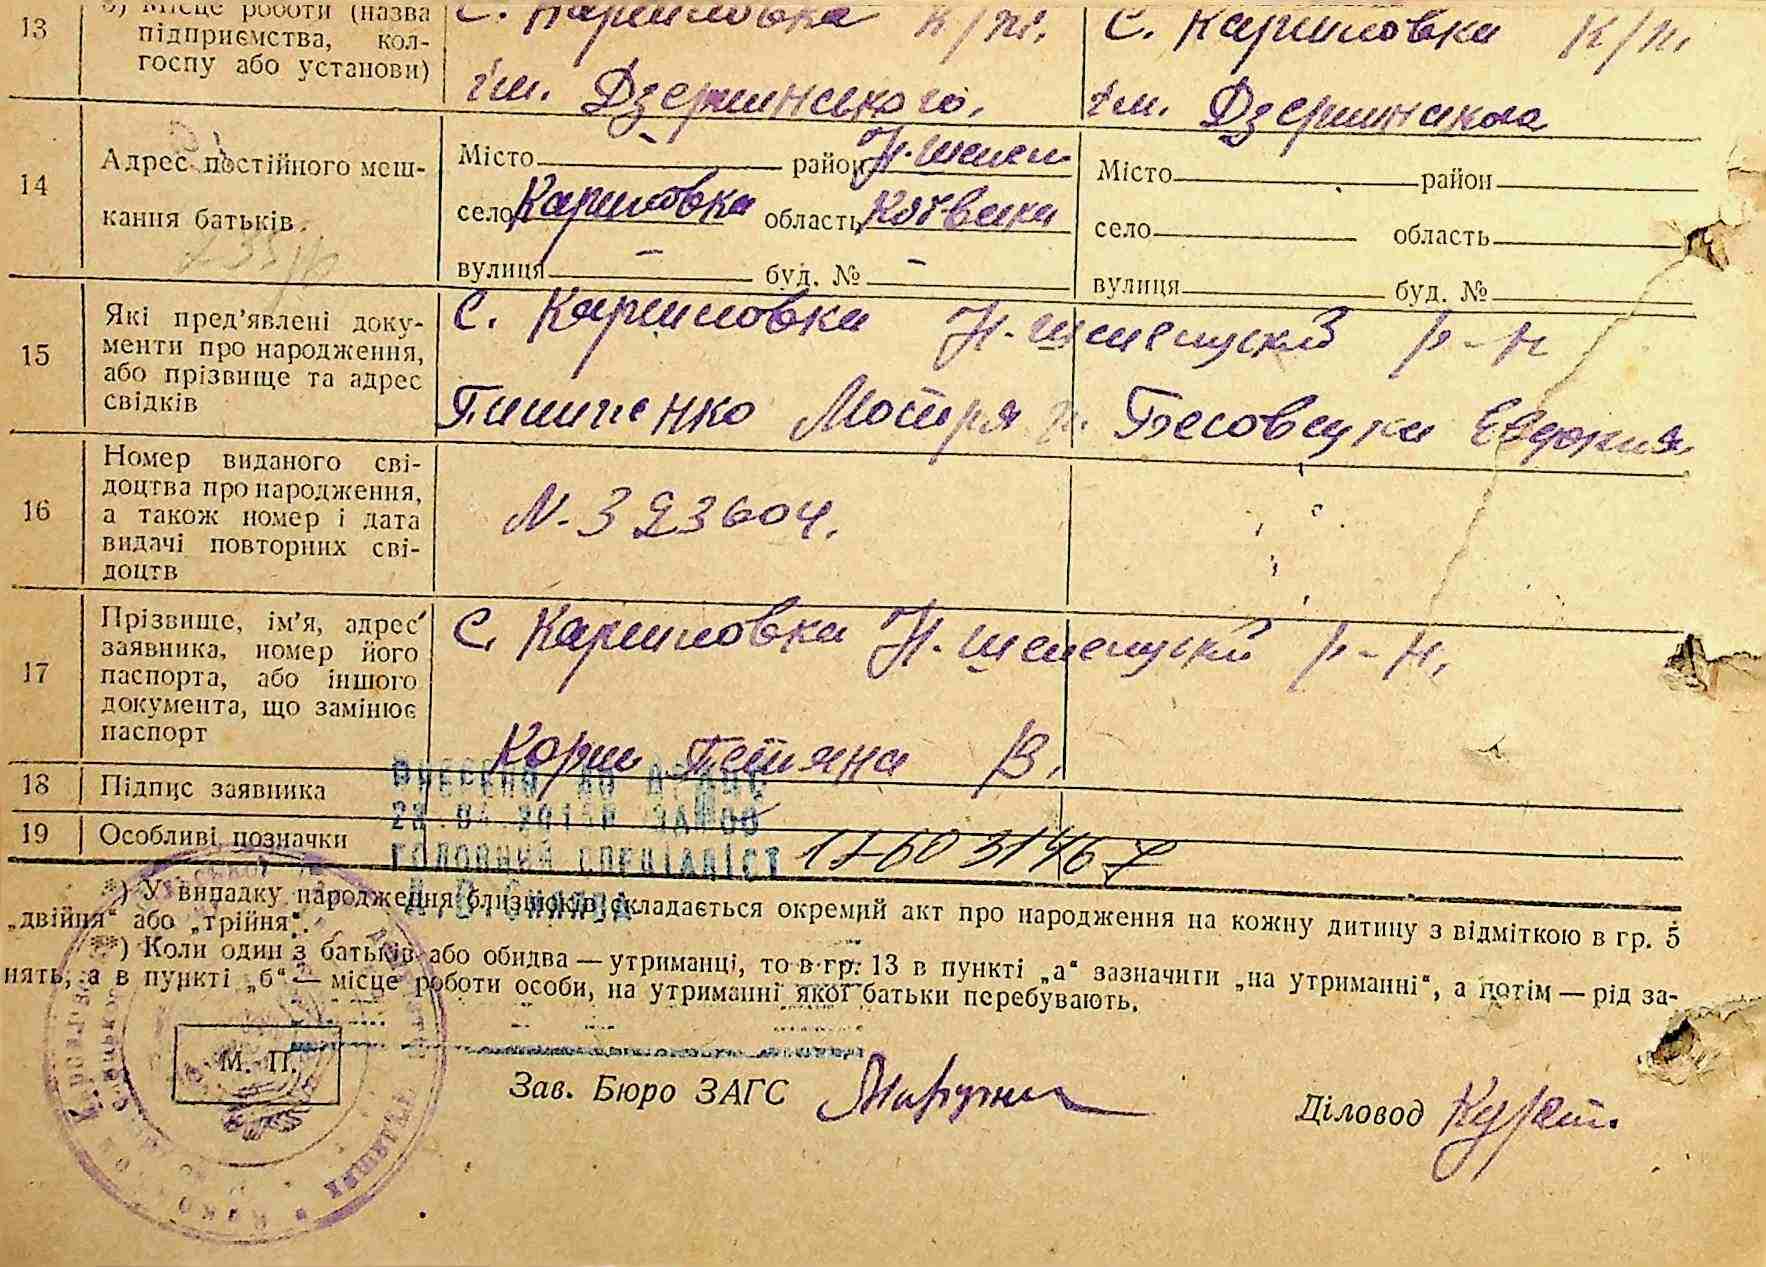 13
б) Місце роботи (назва
підприємства, кол-
госпу або установи)
С. Каришовка К/т.
ім. Дзержинського.
С. Каришовка К/т.
ім. Дзержинского
14
Адрес постійного меш-
кання батьків.
Місто — район Н.-шепел
село Каришовка область
вулиця — буд. № —
Місто район
село область
вулиця буд. №
15
Які пред'явлені доку-
менти про народження,
або прізвище та адрес
свідків
С. Каришовка Н.-шепецкий р-н
Мотря Евдокия
16
Номер виданого сві-
доцтва про народження,
а також номер і дата
видачі повторних сві-
доцтв
N-323604.
17
Прізвище, ім'я, адрес
заявника, номер його
паспорта, або іншого
документа, що замінює
паспорт
С. Каришовка Н.-шепецкий р-н.
Корш Тетяна В.
18
Підпис заявника
19
Особливі позначки
головний спеціаліст
*) У випадку народження близнюків складається окремий акт про народження на кожну дитину з відміткою в гр. 5
„двійня“ або „трійня“.
**) Коли один з батьків або обидва — утриманці, то в гр. 13 в пункті „а“ зазначити „на утриманні“, а потім — рід за-
нять, а в пункті „б“ — місце роботи особи, на утриманні якої батьки перебувають.
М. П.
Зав. Бюро ЗАГС
Діловод